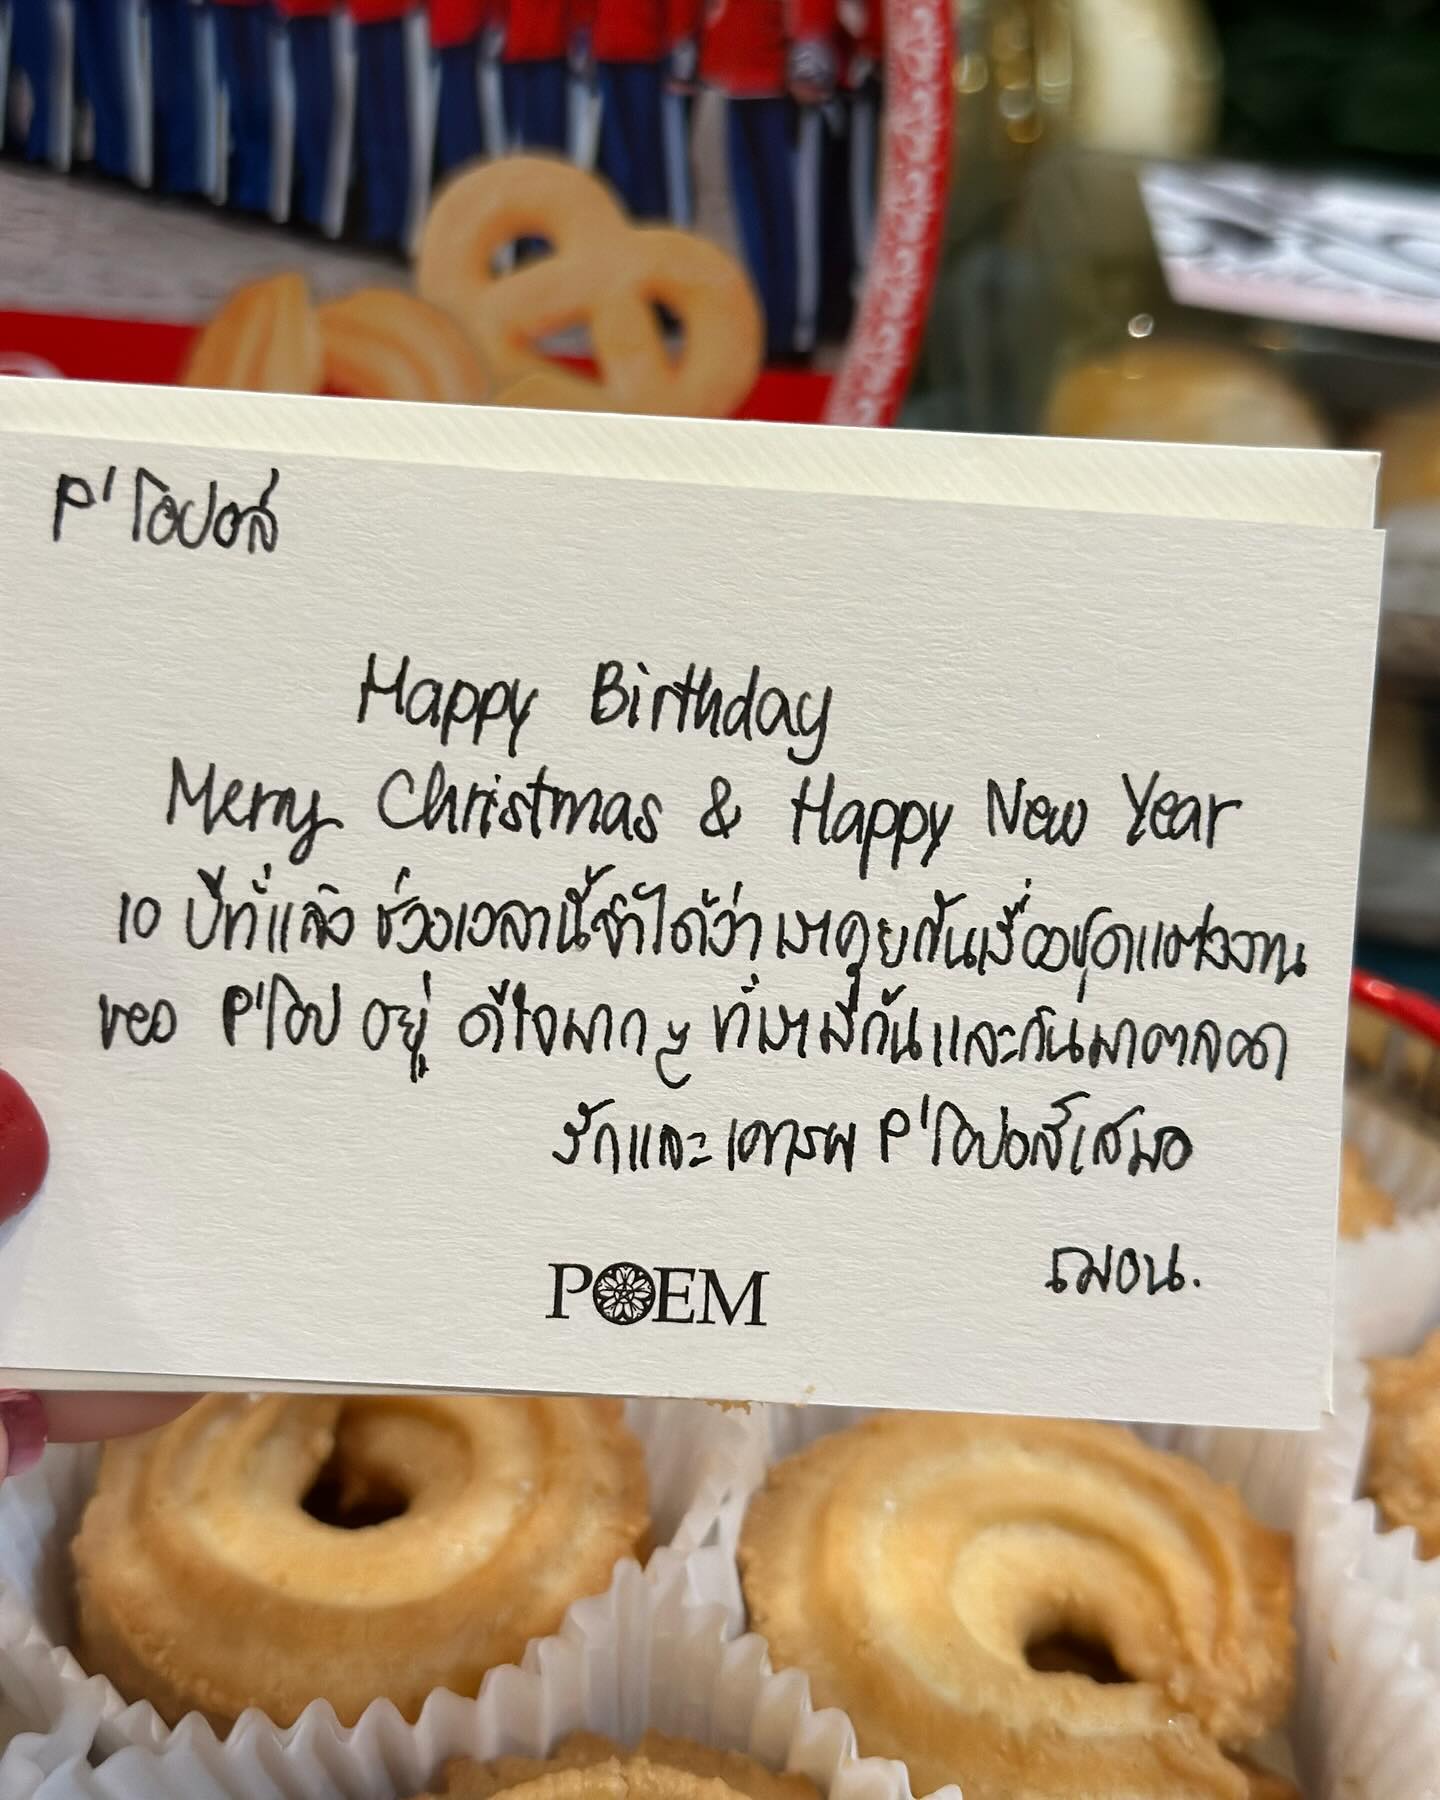 P'โอปอล์
Happy Birthday
Merry Christmas & Happy New Year
10 ปีที่แล้ว ช่วงเวลานี้จำได้ว่า เราคุยกันเรื่องชุดแต่งงาน
ของ P'โอป อยู่ ดีใจมากๆ ที่เรามีกันและกันมาตลอด
รักและเคารพ P'โอปอล์เสมอ
ฌอน.
POEM